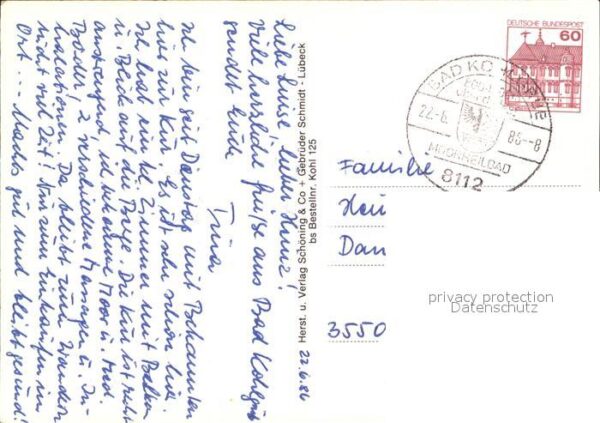 22.6.86
Liebe Lise, lieber Heinz!
Viele herzliche Grüße aus Bad Kohlgrub
sendet Euch
Trina
Ich bin seit Dienstag mit Bekannten
hier zur Kur. Es ist sehr schön hier.
Ich hab ein tolles Zimmer mit Balkon
u. Blick auf die Berge. Die Kur ist recht
anstrengend, ich bekomme Moor u. Med.
Bäder, 2 verschiedene Massagen u. In-
halationen. Da bleibt zum Wandern
nicht viel Zeit! Nur zum Einkaufen im
Ort... Machts gut und bleibt gesund!
Herst. u. Verlag Schöning & Co + Gebrüder Schmidt - Lübeck
bs Bestellnr. Kohl 125
DEUTSCHE BUNDESPOST
60
BAD KO
22.-6. 86.-8
MOORHEILBAD
8112
Familie
Hein
Dan
3550
privacy protection
Datenschutz